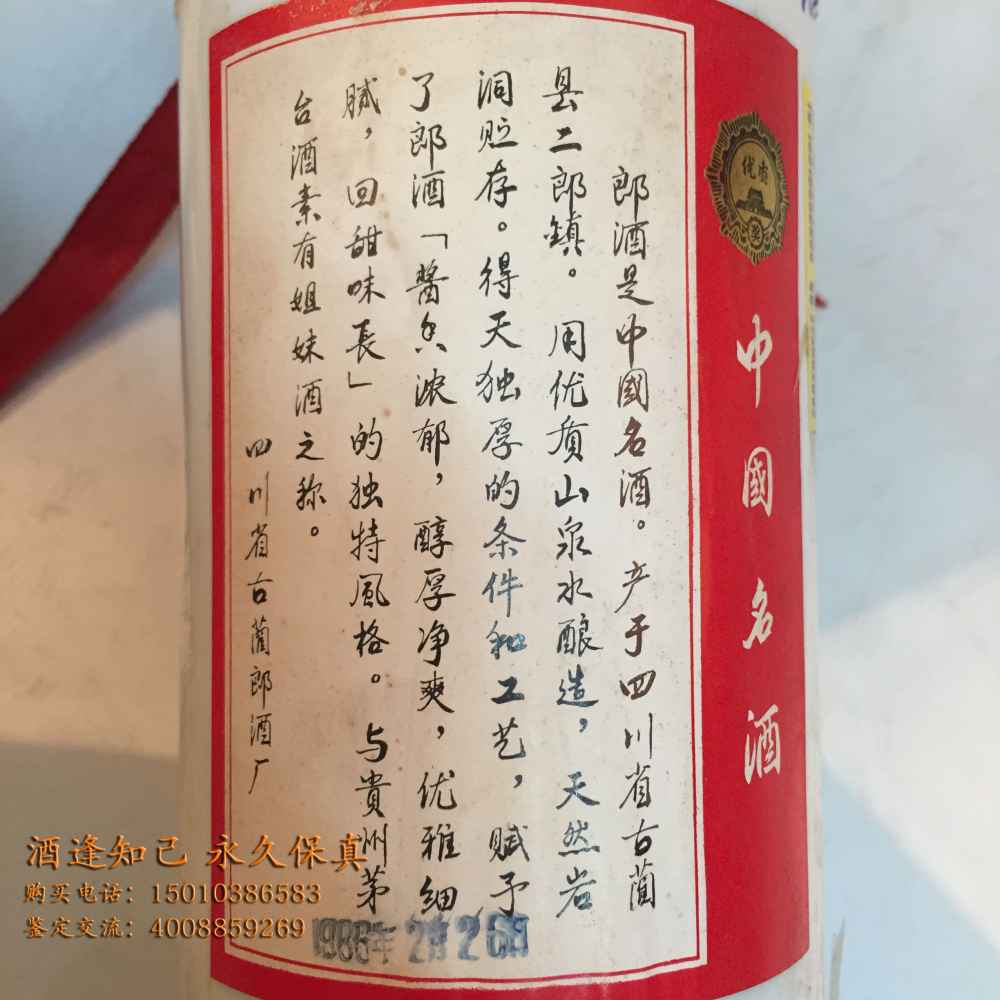 中國名酒
优质
郎酒是中國名酒。产于四川省古蔺
县二郎鎮。用优质山泉水酿造，天然岩
洞贮存。得天独厚的条件和工艺，赋予
了郎酒「醬香浓郁，醇厚净爽，优雅细
腻，回甜味長」的独特風格。与貴州茅
台酒素有姐妹酒之称。
四川省古蔺郎酒厂
1986年2月26日
酒逢知己 永久保真
购买电话：15010386583
鉴定交流：4008859269